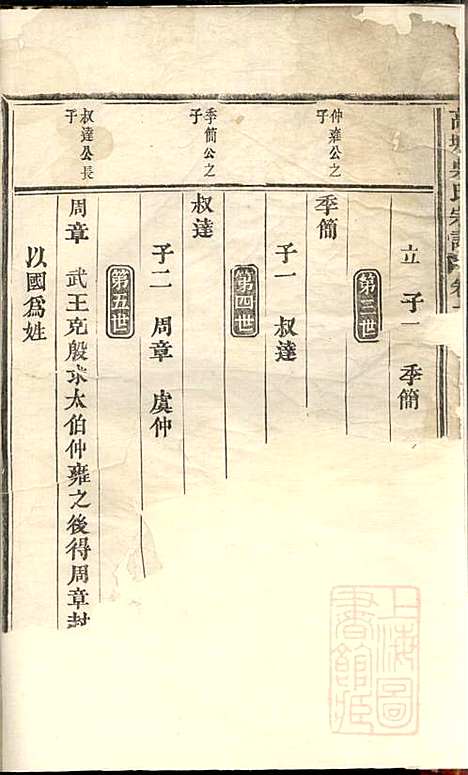 吳氏宗譜
立 子一 季簡
第三世
仲雍公之子
季簡
子一 叔達
第四世
季簡公之子
叔達
子二 周章 虞仲
第五世
叔達公長子
周章 武王克殷求太伯仲雍之後得周章封
以國爲姓
上海圖書館藏